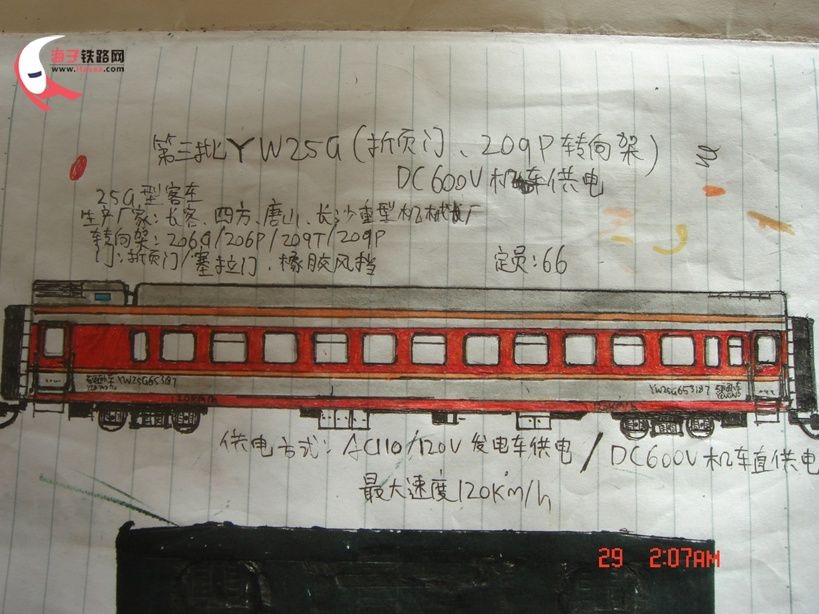 海子铁路网
www.Hasea.com
第三批YW25G(折页门、209P转向架)
DC600V机车供电
25G型客车
生产厂家:长客、四方、唐山、长沙重型机械厂
转向架:206G/206P/209T/209P
门:折页门/塞拉门、橡胶风挡
定员:66
YW25G653187
YW25G653187
供电方式:AC110/120V发电车供电/DC600V机车直供电
最大速度120Km/h
29 2:07AM